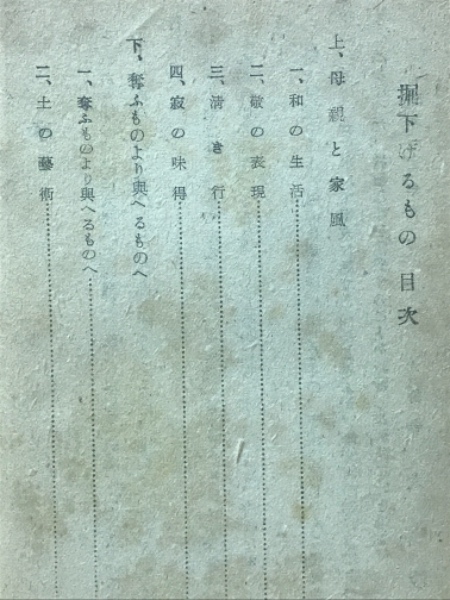 掘下げるもの 目次
上、母親と家風
一、和の生活
二、敬の表現
三、淸き行
四、寂の味得
下、奪ふものより與へるものへ
一、奪ふものより與へるものへ
二、土の藝術